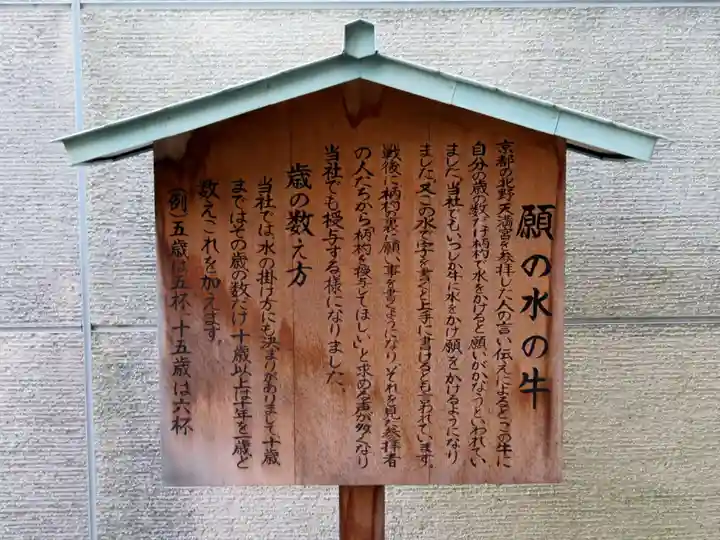 願の水の牛
京都の北野天満宮を参拝した人の言い伝えによるとこの牛に
自分の歳の数だけ柄杓で水をかけると願いがかなうといわれてい
ました、当社でもいつしか牛に水をかけ願をかけるようになり
ました。又この水で字を書くと上手に書けるとも言われています。
戦後に柄杓の裏に願い事を書くようになりそれを見た参拝者
の人たちから柄杓を授与してほしいと求める声が多くなり
当社でも授与する様になりました。
歳の数え方
当社では水の掛け方にも決まりがありまして、十歳
まではその歳の数だけ、十歳以上は十年を一歳と
数えこれを加えます
(例)五歳は五杯、十五歳は六杯